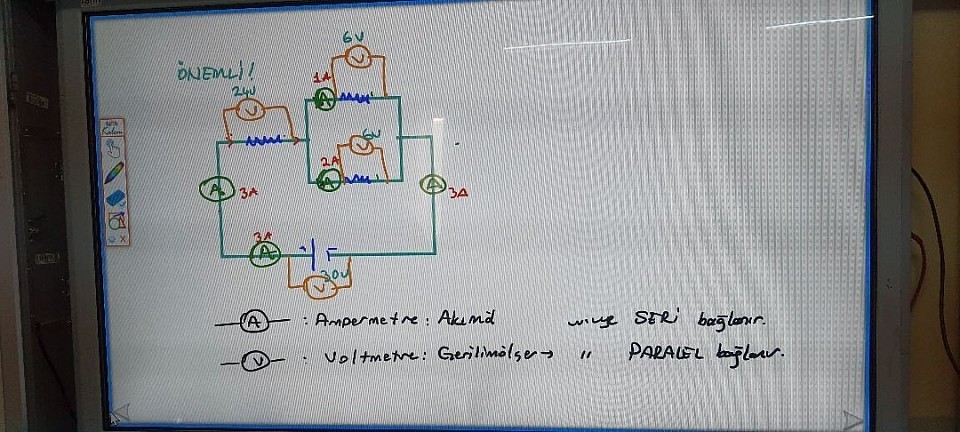 ÖNEMLİ!
6V
24V
1A
A
V
6V
2A
A
V
A
3A
A
3A
3A
A
30V
V
A : Ampermetre : Akım SERİ bağlanır.
V : Voltmetre : Gerilimölçer → " PARALEL bağlanır.